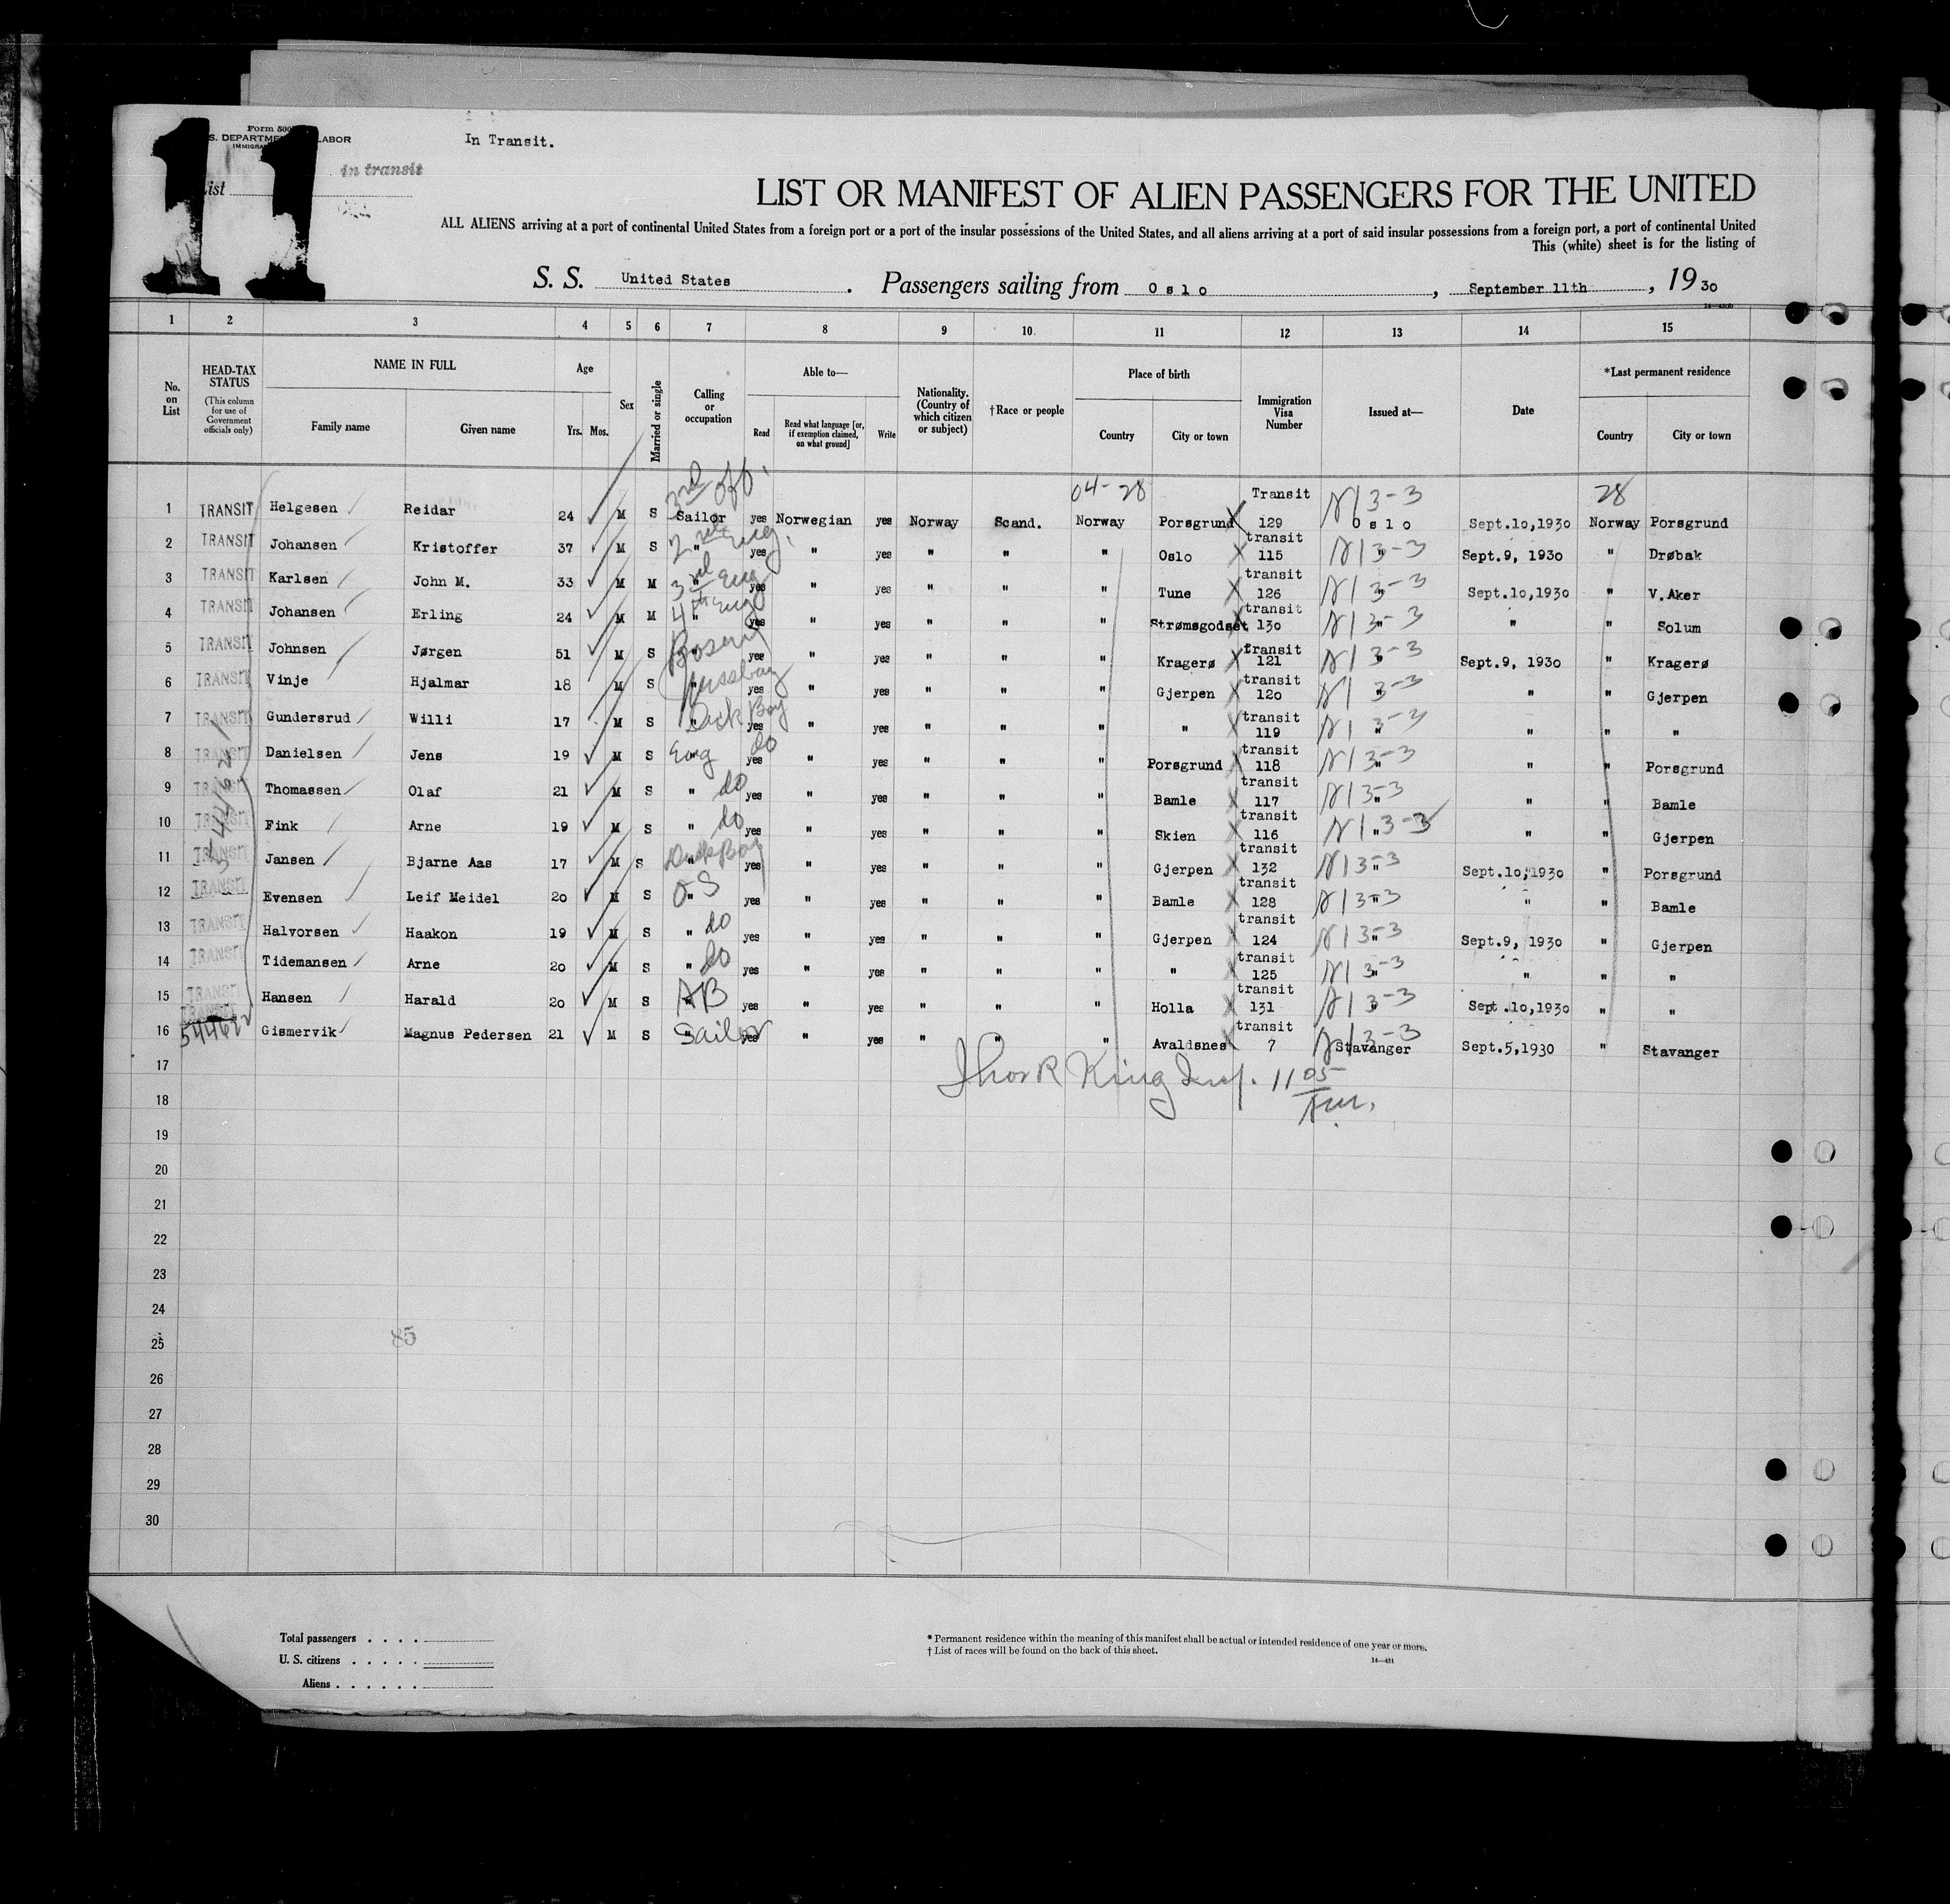 Form 500
S. DEPARTMENT LABOR
In Transit.
11
List
In transit
LIST OR MANIFEST OF ALIEN PASSENGERS FOR THE UNITED
ALL ALIENS arriving at a port of continental United States from a foreign port or a port of the insular possessions of the United States, and all aliens arriving at a port of said insular possessions from a foreign port, a port of continental United
This (white) sheet is for the listing of
S. S. United States . Passengers sailing from Oslo , September 11th , 1930
1 2 3 4 5 6 7 8 9 10 11 12 13 14 15
No. on List
HEAD-TAX STATUS (This column for use of Government officials only)
NAME IN FULL
Family name Given name
Age
Yrs. Mos.
Sex
Married or single
Calling or occupation
Able to—
Read
Read what language [or, if exemption claimed, on what ground]
Write
Nationality. (Country of which citizen or subject)
†Race or people
Place of birth
Country City or town
Immigration Visa Number
Issued at—
Date
*Last permanent residence
Country City or town
3rd off. 04-28 28
1 TRANSIT Helgesen Reidar 24 M S Sailor yes Norwegian yes Norway Scand. Norway Porsgrund Transit 129 3-3 Oslo Sept.10,1930 Norway Porsgrund
2 TRANSIT Johansen Kristoffer 37 M S 2nd eng. " yes " yes " " " Oslo transit 115 3-3 " Sept.9, 1930 " Drøbak
3 TRANSIT Karlsen John M. 33 M M 3rd Eng " yes " yes " " " Tune transit 126 3-3 " Sept.10,1930 " V.Aker
4 TRANSIT Johansen Erling 24 M M 4th Eng " yes " yes " " " Strømsgodset transit 130 3-3 " " " Solum
5 TRANSIT Johnsen Jørgen 51 M S " yes " yes " " " Kragerø transit 121 3-3 " Sept.9, 1930 " Kragerø
6 TRANSIT Vinje Hjalmar 18 M S Messboy " yes " yes " " " Gjerpen transit 120 3-3 " " " Gjerpen
7 TRANSIT Gundersrud Willi 17 M S Deck Boy " yes " yes " " " " transit 119 3-3 " " " "
8 TRANSIT Danielsen Jens 19 M S Eng do " yes " yes " " " Porsgrund transit 118 3-3 " " " Porsgrund
9 TRANSIT Thomassen Olaf 21 M S " do yes " yes " " " Bamle transit 117 3-3 " " " Bamle
10 TRANSIT Fink Arne 19 M S " do yes " yes " " " Skien transit 116 3-3 " " " Gjerpen
11 TRANSIT Jansen Bjarne Aas 17 M S Deck Boy " yes " yes " " " Gjerpen transit 132 3-3 " Sept.10,1930 " Porsgrund
12 TRANSIT Evensen Leif Meidel 20 M S OS " yes " yes " " " Bamle transit 128 3-3 " " " Bamle
13 TRANSIT Halvorsen Haakon 19 M S " do yes " yes " " " Gjerpen transit 124 3-3 " Sept.9, 1930 " Gjerpen
14 TRANSIT Tidemansen Arne 20 M S " do yes " yes " " " " transit 125 3-3 " " " "
15 TRANSIT Hansen Harald 20 M S AB " yes " yes " " " Holla transit 131 3-3 " Sept.10,1930 " "
TRANSIT
16 Gismervik Magnus Pedersen 21 M S Sailor " yes " yes " " " Avaldsnes transit 7 3-3 Stavanger Sept.5,1930 " Stavanger
17 Thos R King Insp. 11 05
18 Am.
19
20
21
22
23
24
25 85
26
27
28
29
30
Total passengers . . . .
U. S. citizens . . . . .
Aliens . . . . . .
* Permanent residence within the meaning of this manifest shall be actual or intended residence of one year or more.
† List of races will be found on the back of this sheet.
14—431